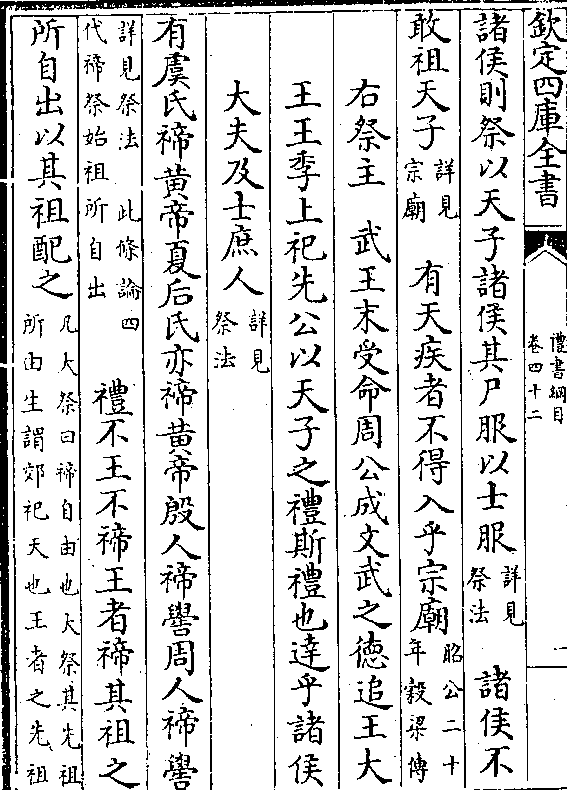 欽定四庫全書
禮書綱目
卷四十二
一
諸侯則祭以天子諸侯其尸服以士服詳見祭法　諸侯不
敢祖天子詳見宗廟　有天疾者不得入乎宗廟昭公二十年穀梁傳
右祭主　武王末受命周公成文武之德追王大
王王季上祀先公以天子之禮斯禮也達乎諸侯
大夫及士庶人詳見祭法
有虞氏禘黄帝夏后氏亦禘黄帝殷人禘嚳周人禘嚳
詳見祭法　此條論四代禘祭始祖所自出　禮不王不禘王者禘其祖之
所自出以其祖配之凡大祭曰禘自由也大祭其先祖所由生謂郊祀天也王者之先祖